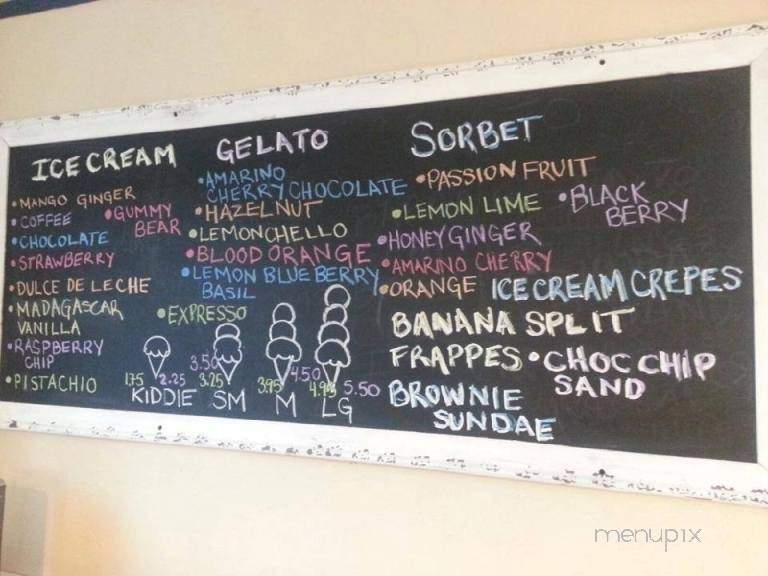 ICE CREAM
• MANGO GINGER
• COFFEE
• GUMMY
BEAR
• CHOCOLATE
• STRAWBERRY
• DULCE DE LECHE
• MADAGASCAR
VANILLA
• RASPBERRY
CHIP
• PISTACHIO
GELATO
• AMARINO
CHERRY CHOCOLATE
• HAZELNUT
• LEMONCHELLO
• BLOOD ORANGE
• LEMON BLUE BERRY
BASIL
• EXPRESSO
1.75 2.25
KIDDIE
3.50
3.25
SM
4.50
3.95
M
4.95 5.50
LG
SORBET
• PASSION FRUIT
• LEMON LIME
• BLACK
BERRY
• HONEY GINGER
• AMARINO CHERRY
• ORANGE
ICE CREAM CREPES
BANANA SPLIT
FRAPPES • CHOC CHIP
SAND
BROWNIE
SUNDAE
menupix